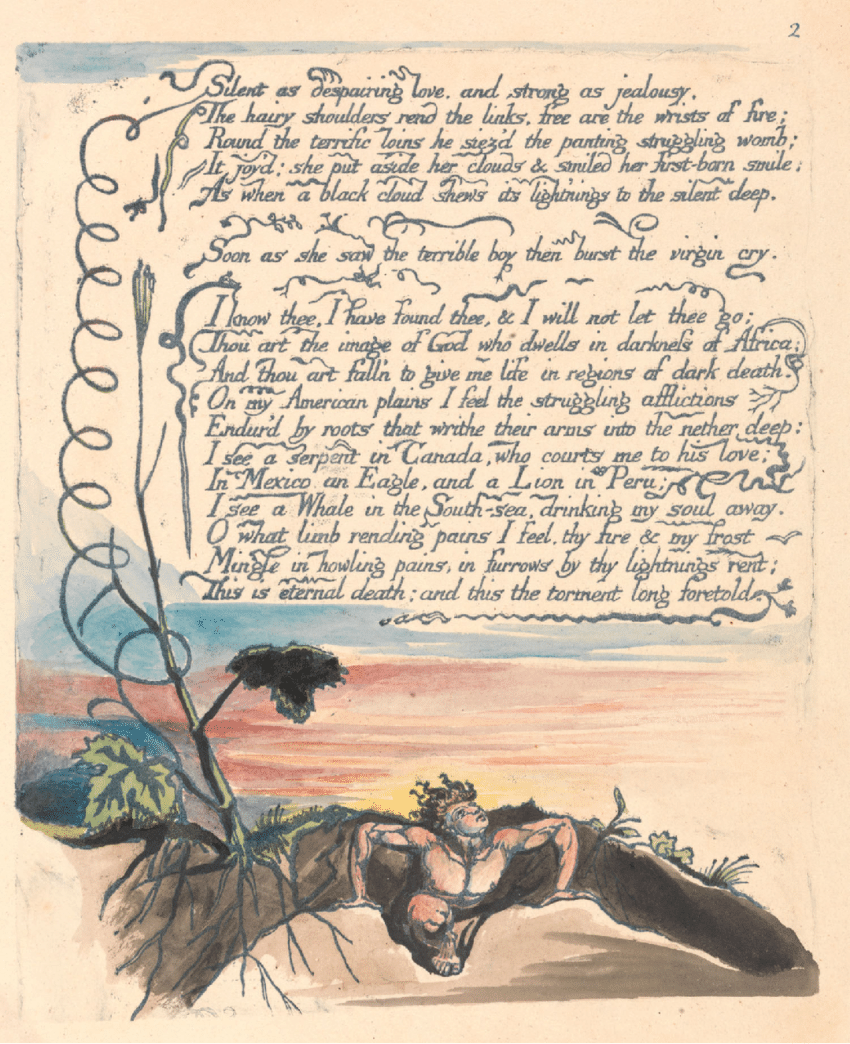 2
Silent as despairing love, and strong as jealousy,
The hairy shoulders rend the links, free are the wrists of fire;
Round the terrific loins he siez'd the panting struggling womb;
It joy'd: she put aside her clouds & smiled her first-born smile;
As when a black cloud shews its light'nings to the silent deep.
Soon as she saw the terrible boy then burst the virgin cry.
I know thee, I have found thee, & I will not let thee go;
Thou art the image of God who dwells in darkness of Africa;
And thou art fall'n to give me life in regions of dark death.
On my American plains I feel the struggling afflictions
Endur'd by roots that writhe their arms into the nether deep:
I see a serpent in Canada, who courts me to his love;
In Mexico an Eagle, and a Lion in Peru;
I see a Whale in the South-sea, drinking my soul away.
O what limb rending pains I feel, thy fire & my frost
Mingle in howling pains, in furrows by thy lightnings rent;
This is eternal death; and this the torment long foretold.